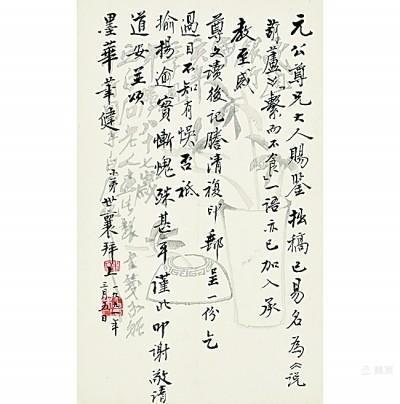 元公尊兄大人賜鑒拙稿已易名為《說
葫蘆》「繫而不食」一語亦已加入承
教至感
尊文讀後記謄清複印郵呈一份乞
過目不知有悞否祗
揄揚逾實慚愧殊甚耳謹此叩謝敬請
道安並頌
墨華筆健
弟世襄拜上
一九九一年
三月五日